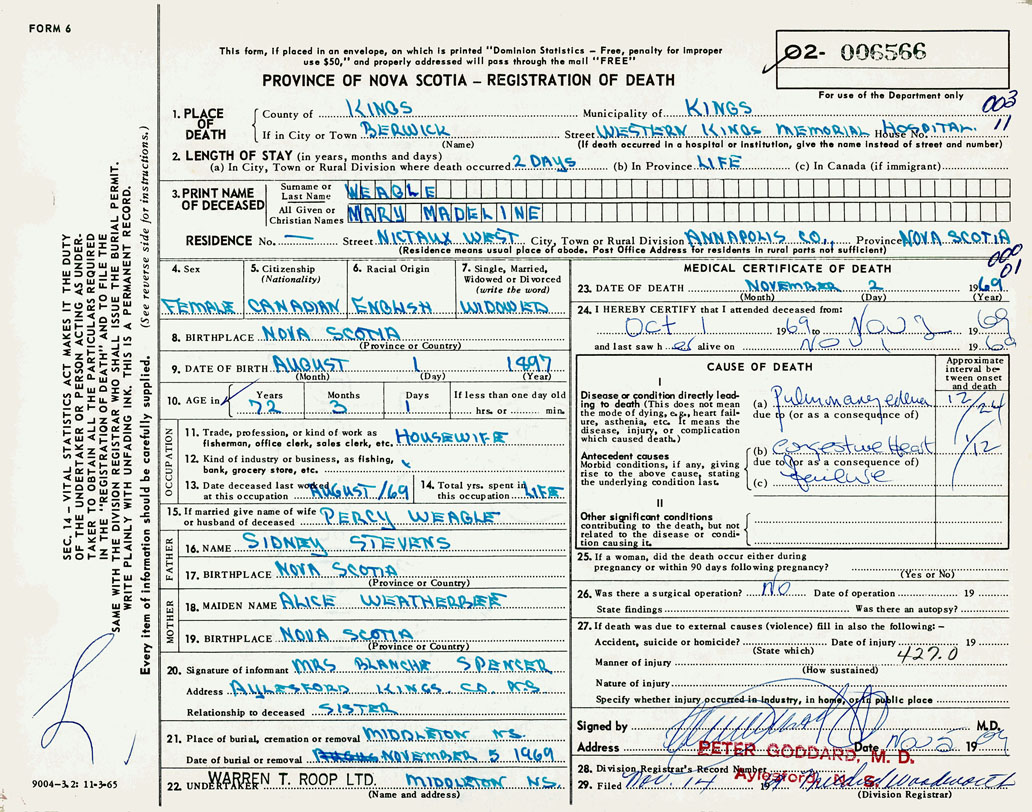 FORM 6
This form, if placed in an envelope, on which is printed "Dominion Statistics – Free, penalty for improper
use $50," and properly addressed will pass through the mail "FREE"
02- 006566
PROVINCE OF NOVA SCOTIA – REGISTRATION OF DEATH
For use of the Department only
003
11
1. PLACE OF DEATH
County of KINGS Municipality of KINGS
If in City or Town BERWICK Street WESTERN KINGS MEMORIAL House No. HOSPITAL.
(Name) (If death occurred in a hospital or institution, give the name instead of street and number)
2. LENGTH OF STAY (in years, months and days)
(a) In City, Town or Rural Division where death occurred 2 DAYS (b) In Province LIFE (c) In Canada (if immigrant)
3. PRINT NAME OF DECEASED
Surname or Last Name WEAGLE
All Given or Christian Names MARY MADELINE
RESIDENCE No. — Street NICTAUX WEST City, Town or Rural Division ANNAPOLIS CO., Province NOVA SCOTIA
(Residence means usual place of abode. Post Office Address for residents in rural parts not sufficient)
000
01
4. Sex
FEMALE
5. Citizenship
(Nationality)
CANADIAN
6. Racial Origin
ENGLISH
7. Single, Married,
Widowed or Divorced
(write the word)
WIDOWED
8. BIRTHPLACE NOVA SCOTIA
(Province or Country)
9. DATE OF BIRTH AUGUST 1 1897
(Month) (Day) (Year)
10. AGE in
Years Months Days If less than one day old
72 3 1 hrs. or min.
OCCUPATION
11. Trade, profession, or kind of work as
fisherman, office clerk, sales clerk, etc. HOUSEWIFE
12. Kind of industry or business, as fishing,
bank, grocery store, etc.
13. Date deceased last worked
at this occupation AUGUST/69
14. Total yrs. spent in
this occupation LIFE
15. If married give name of wife
or husband of deceased PERCY WEAGLE
FATHER
16. NAME SIDNEY STEVENS
17. BIRTHPLACE NOVA SCOTIA
(Province or Country)
MOTHER
18. MAIDEN NAME ALICE WEATHERBEE
19. BIRTHPLACE NOVA SCOTIA
(Province or Country)
20. Signature of informant MRS BLANCHE SPENCER
Address AYLESFORD KINGS. CO. N.S
Relationship to deceased SISTER
21. Place of burial, cremation or removal MIDDLETON NS.
Date of burial or removal NOVEMBER 5 1969
22. UNDERTAKER WARREN T. ROOP LTD. MIDDLETON NS.
(Name and address)
MEDICAL CERTIFICATE OF DEATH
23. DATE OF DEATH NOVEMBER 2 1969
(Month) (Day) (Year)
24. I HEREBY CERTIFY that I attended deceased from:
Oct 1 1969 to Nov 2 1969
and last saw her alive on Nov 1 1969
CAUSE OF DEATH
Approximate
interval be-
tween onset
and death
I
Disease or condition directly lead-
ing to death (This does not mean
the mode of dying, e.g., heart fail-
ure, asthenia, etc. It means the
disease, injury, or complication
which caused death.)
(a) Pulmonary edema 12/24
due to (or as a consequence of)
Antecedent causes
Morbid conditions, if any, giving
rise to the above cause, stating
the underlying condition last.
(b) Congestive Heart 1/12
due to (or as a consequence of)
(c) failure
II
Other significant conditions
contributing to the death, but not
related to the disease or condi-
tion causing it.
25. If a woman, did the death occur either during
pregnancy or within 90 days following pregnancy?
(Yes or No)
26. Was there a surgical operation? NO Date of operation 19
State findings Was there an autopsy?
27. If death was due to external causes (violence) fill in also the following:–
Accident, suicide or homicide? Date of injury 19
(State which)
427.0
Manner of injury
(How sustained)
Nature of injury
Specify whether injury occurred in industry, in home, or in public place
Signed by M.D.
Address Date Nov 2 1969
PETER GODDARD, M. D.
Aylesford, N. S.
28. Division Registrar's Record Number
29. Filed Nov. 14 19
(Division Registrar)
SEC. 14 – VITAL STATISTICS ACT MAKES IT THE DUTY
OF THE UNDERTAKER OR PERSON ACTING AS UNDER-
TAKER TO OBTAIN ALL THE PARTICULARS REQUIRED
IN THE "REGISTRATION OF DEATH" AND TO FILE THE
SAME WITH THE DIVISION REGISTRAR WHO SHALL ISSUE THE BURIAL PERMIT.
WRITE PLAINLY WITH UNFADING INK. THIS IS A PERMANENT RECORD.
Every item of information should be carefully supplied. (See reverse side for instructions.)
9004–3.2: 11-3-65